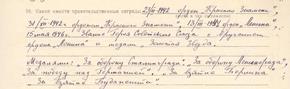 10. Какие имеете правительственные награды 27/III 1942 орден "Красное Знамя",
31/VIII 1942 орден "Красное Знамя", 13/XII 1942 орден "Ленина",
15 мая 1946. Звание Героя Советского Союза с вручением
ордена "Ленина" и медали Золотая Звезда.
Медалями: "За оборону Сталинграда", "За оборону Ленинграда",
"За победу над Германией", "За взятие Берлина"
"За взятие Будапешта"